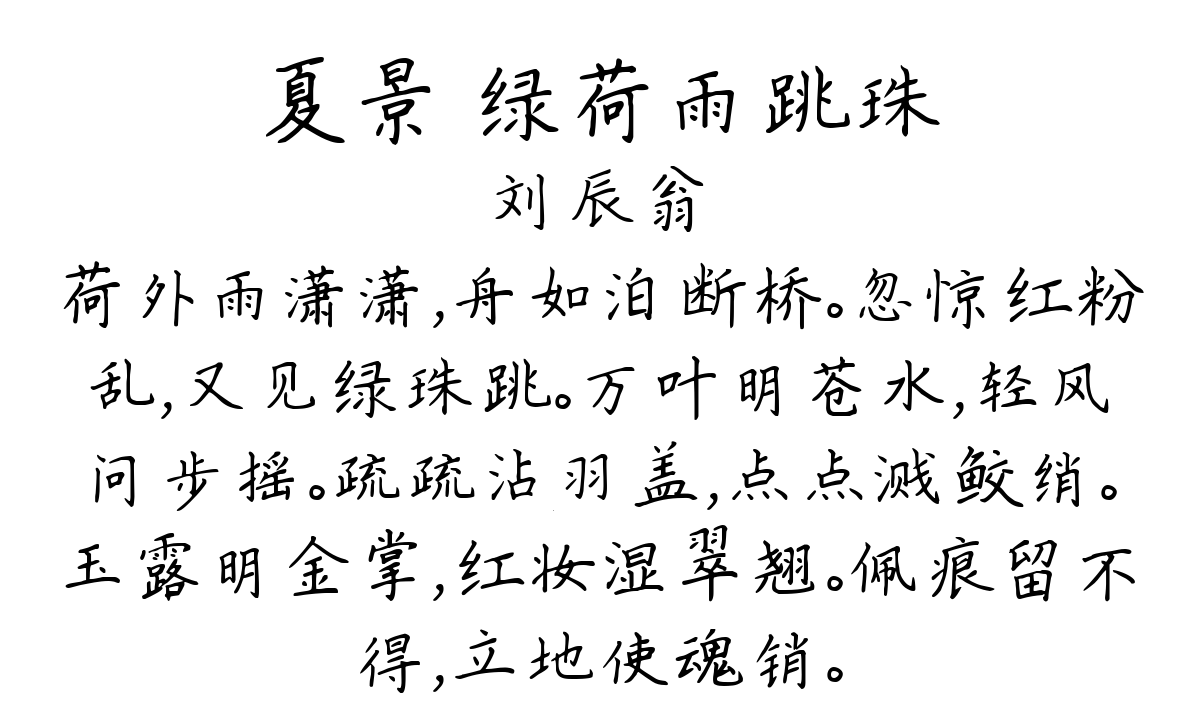 夏景 绿荷雨跳珠
刘辰翁
荷外雨潇潇,舟如泊断桥。忽惊红粉
乱,又见绿珠跳。万叶明苍水,轻风
问步摇。疏疏沾羽盖,点点溅鲛绡。
玉露明金掌,红妆湿翠翘。佩痕留不
得,立地使魂销。